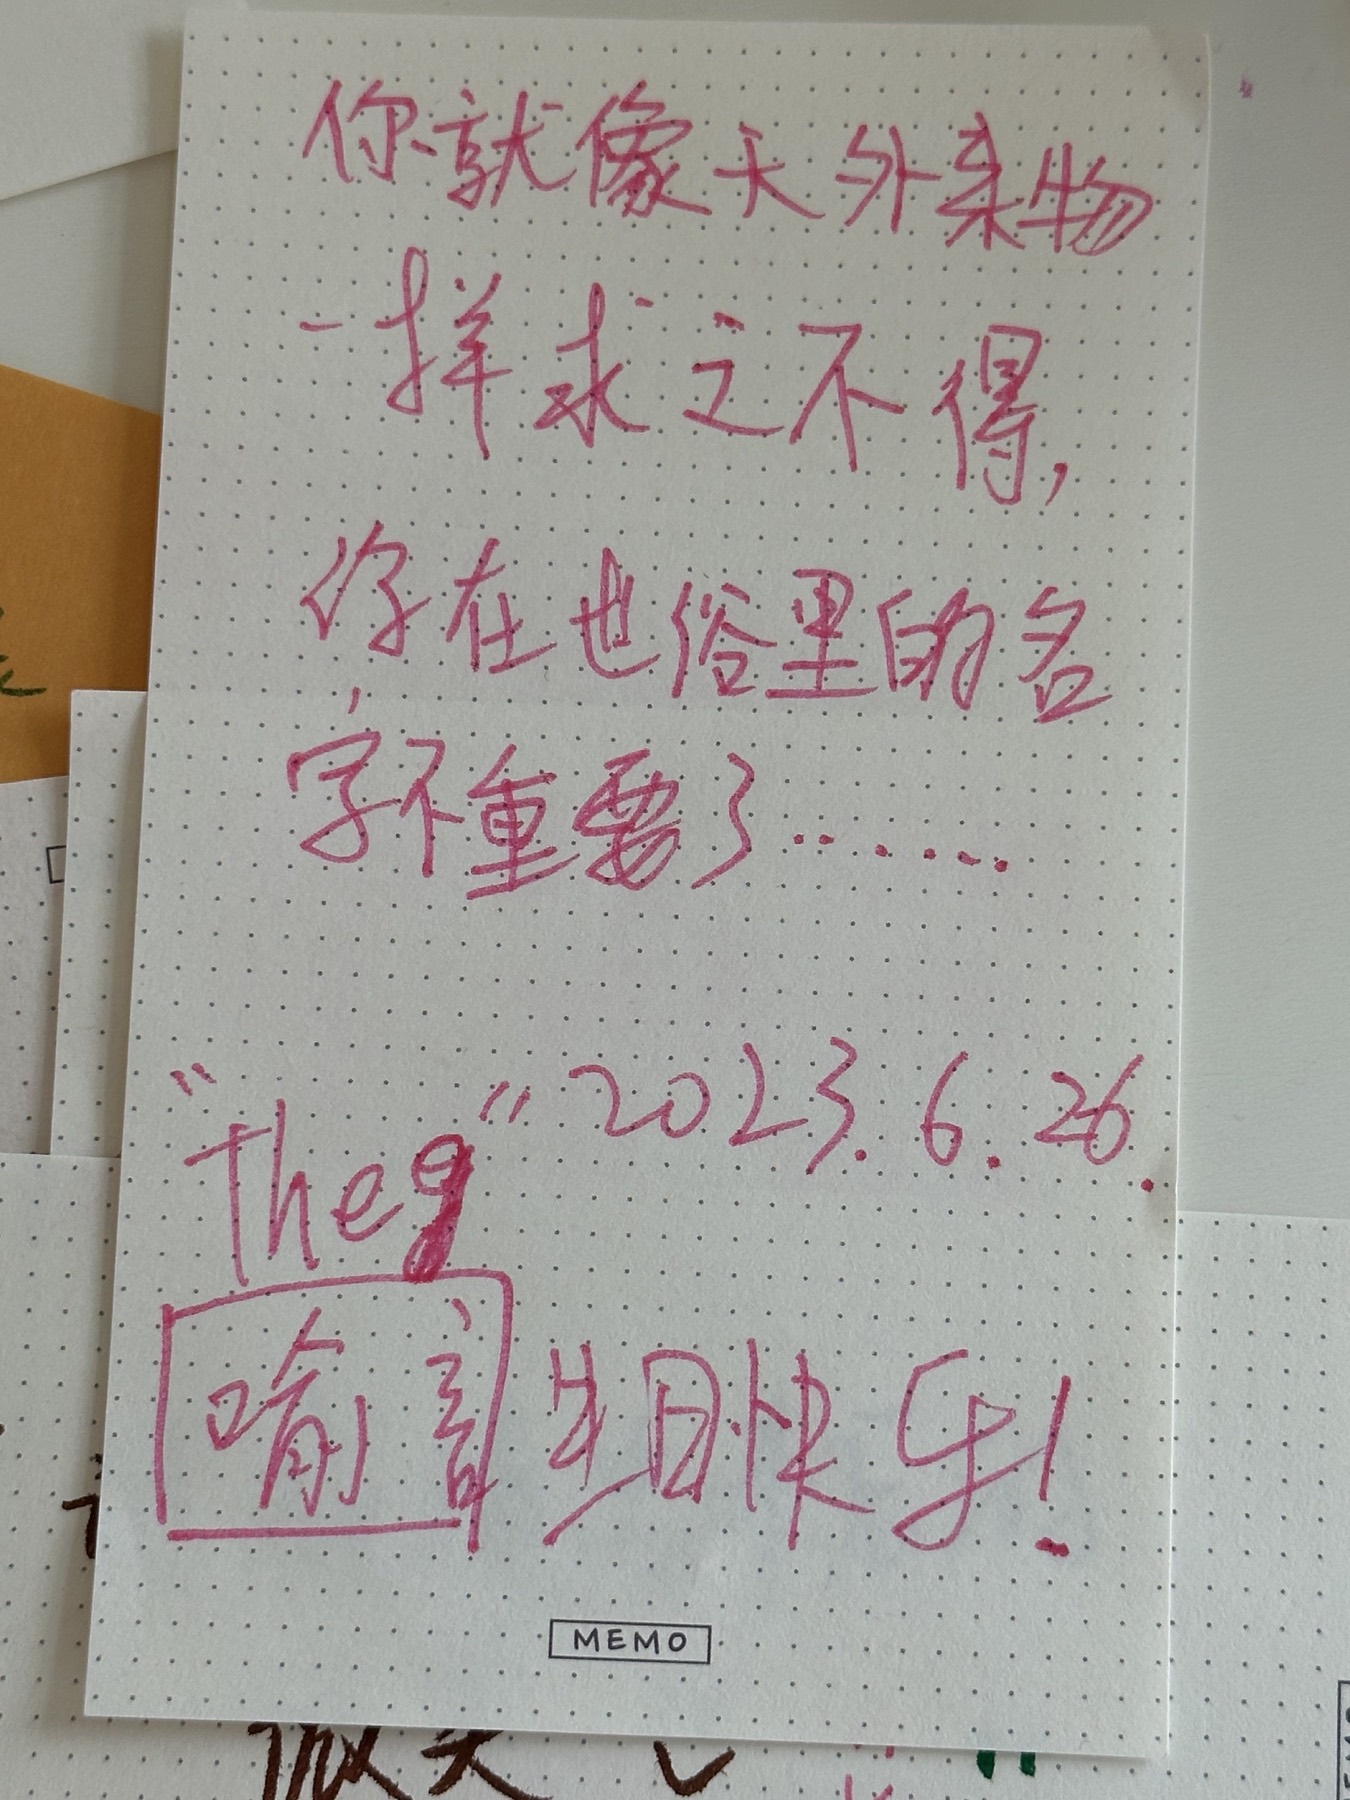 你就像天外来物
一样求之不得,
你在世俗里的名
字不重要了……
"The9" 2023.6.26.
喻言 生日快乐!
MEMO
微笑